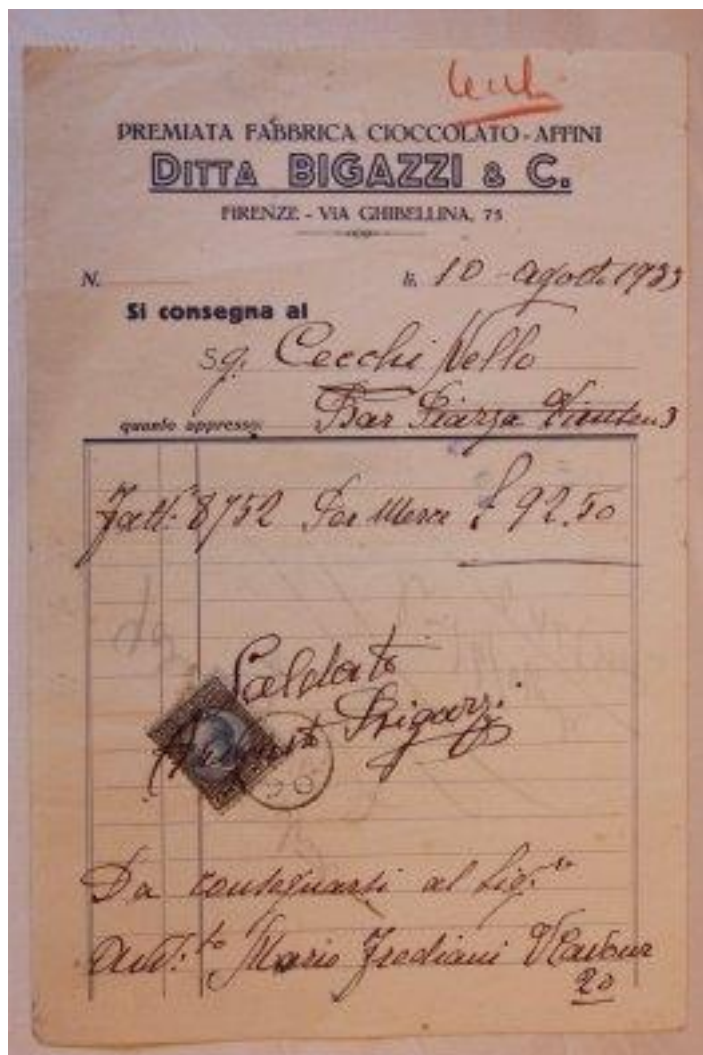 PREMIATA FABBRICA CIOCCOLATO - AFFINI
DITTA BIGAZZI & C.
FIRENZE - VIA GHIBELLINA, 75
N. li, 10 - agost. 1933
Si consegna al
sg. Cecchi Nello
quanto appresso: Bar Piazza
Fatt. 8752 Per Merce £ 92.50
Saldato
Bigazzi
Da consegnarsi al Sig.
Avv.to Mario Frediani
20